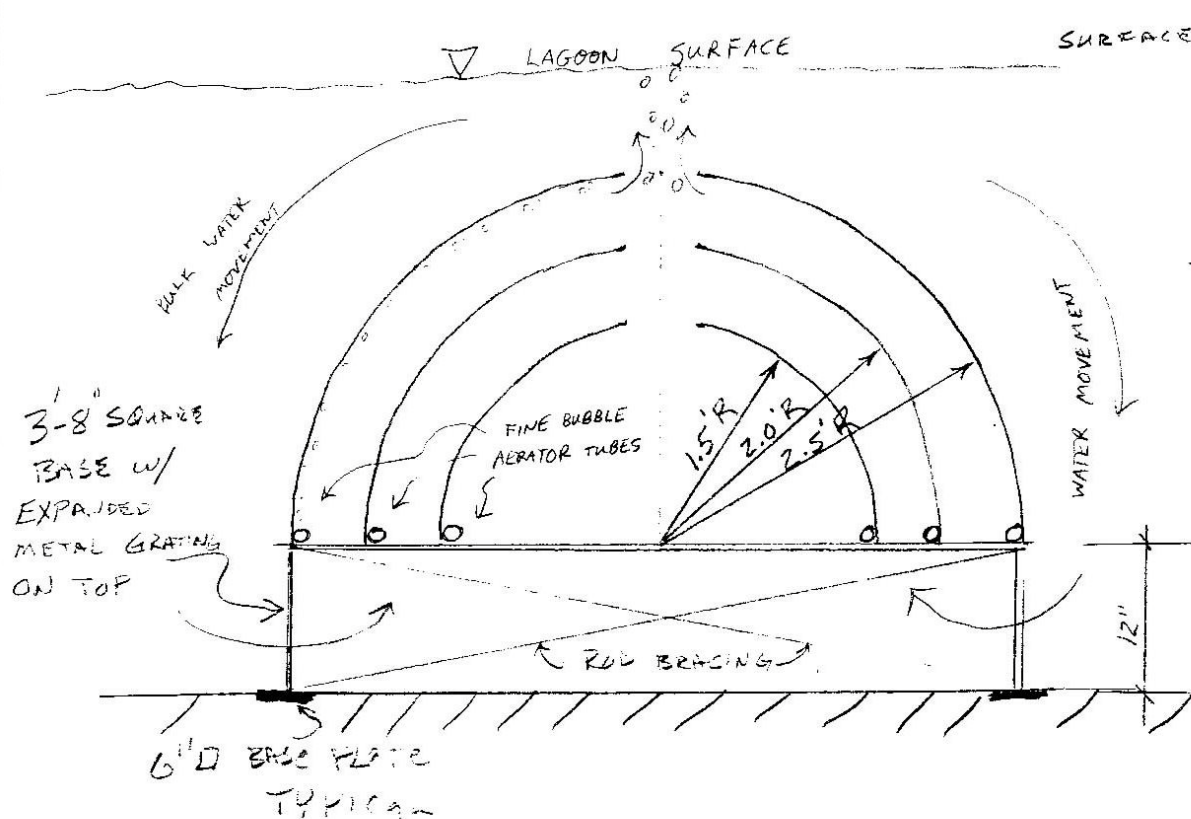 LAGOON SURFACE
SURFACE
BULK WATER
MOVEMENT
WATER MOVEMENT
3'-8" SQUARE
BASE W/
EXPANDED
METAL GRATING
ON TOP
FINE BUBBLE
AERATOR TUBES
1.5'R
2.0'R
2.5'R
12"
ROD BRACING
6"□ BASE PLATE
TYPICAL